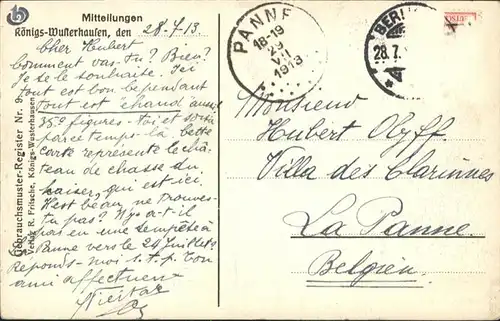 Mitteilungen
Königs-Wusterhausen, den 28-7-13.
Cher Hubert
Comment vas-tu? Bien?
Je te le souhaite. Ici
tout est bon cependant
tout est chaud aussi
35° figures-toi et
par ce temps-là. Cette
carte représente le châ-
teau de chasse du
Kaiser, qui est ici.
N'est beau, ne trouves-
tu pas? N'y a-t-il
pas eu une tempête à
Panne vers le 24 Juillet?
Réponds-moi s.t.p. Ton
ami affectueux
Gebrauchsmuster-Register Nr. 9
Verlag R. Fritsche, Königs-Wusterhausen
PANNE
18-19
29
VII
1913
BERLIN
28.7.
Monsieur
Hubert Olyff
Villa des Clarines
La Panne.
Belgien.